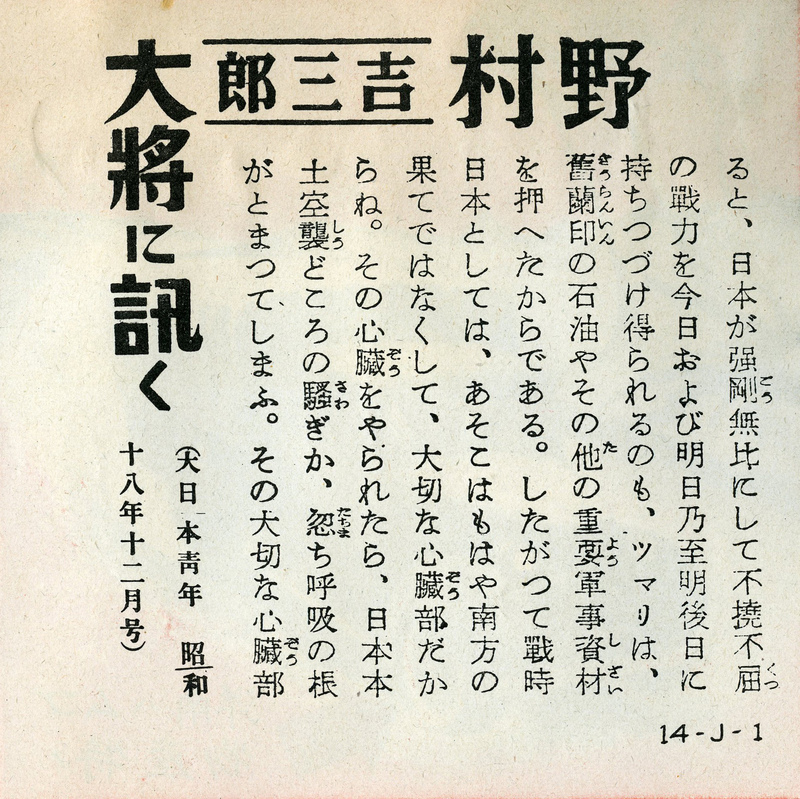 野村吉三郎
大將に訊く
(大日本青年 昭和
十八年十二月号)
ると、日本が强剛無比にして不撓不屈
の戰力を今日および明日乃至明後日に
持ちつづけ得られるのも、ツマリは、
舊蘭印の石油やその他の重要軍事資材
を押へたからである。したがつて戰時
日本としては、あそこはもはや南方の
果てではなくして、大切な心臟部だか
らね。その心臟をやられたら、日本本
土空襲どころの騷ぎか、忽ち呼吸の根
がとまつてしまふ。その大切な心臟部
14-J-1